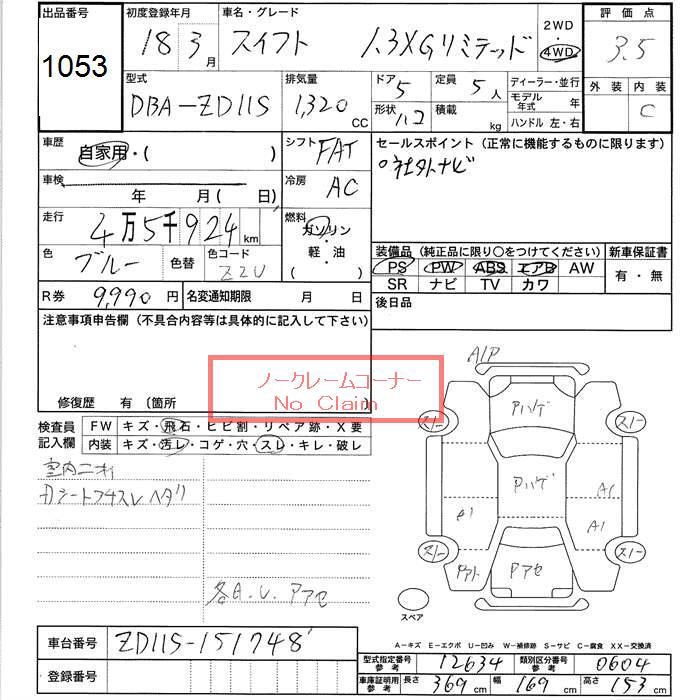 出品番号
1053
初度登録年月
18 3 月
車名・グレード
スイフト 1.3XGリミテッド
2WD
・4WD
評価点
3.5
型式
DBA-ZD11S
排気量
1,320 CC
ドア 5
定員 5 人
形状 ハコ
積載 kg
ディーラー・並行
モデル年式 年
ハンドル 左・右
外装 内装
C
車歴
自家用・( )
シフト FAT
車検 年 月( 日)
冷房 AC
走行
4万5千924 km
燃料
ガソリン
軽・油
( )
色 ブルー
色替
色コード ZZU
R券 9,990 円
名変通知期限 月 日
セールスポイント(正常に機能するものに限ります)
○社外ナビ
装備品(純正品に限り○をつけてください)
PS PW ABS エアB AW
SR ナビ TV カワ
新車保証書
有・無
後日品
注意事項申告欄(不具合内容等は具体的に記入して下さい)
修復歴 有 (箇所
ノークレームコーナー
No Claim
検査員記入欄
FW キズ・飛石・ヒビ割・リペア跡・X要
内装 キズ・汚レ・コゲ・穴・スレ・キレ・破レ
室内ニオイ
各A.U.アアセ
A/P
Pハゲ
Pハゲ
Pアセ
A1
A1
A1
スペア
A-キズ E-エクボ U-凹み W-補修跡 S-サビ C-腐食 XX-交換済
車台番号 ZD11S-151748
登録番号
型式指定番号参考 12634
類別区分番号参考 0604
車庫証明用参考 長さ 369 cm 幅 169 cm 高さ 153 cm